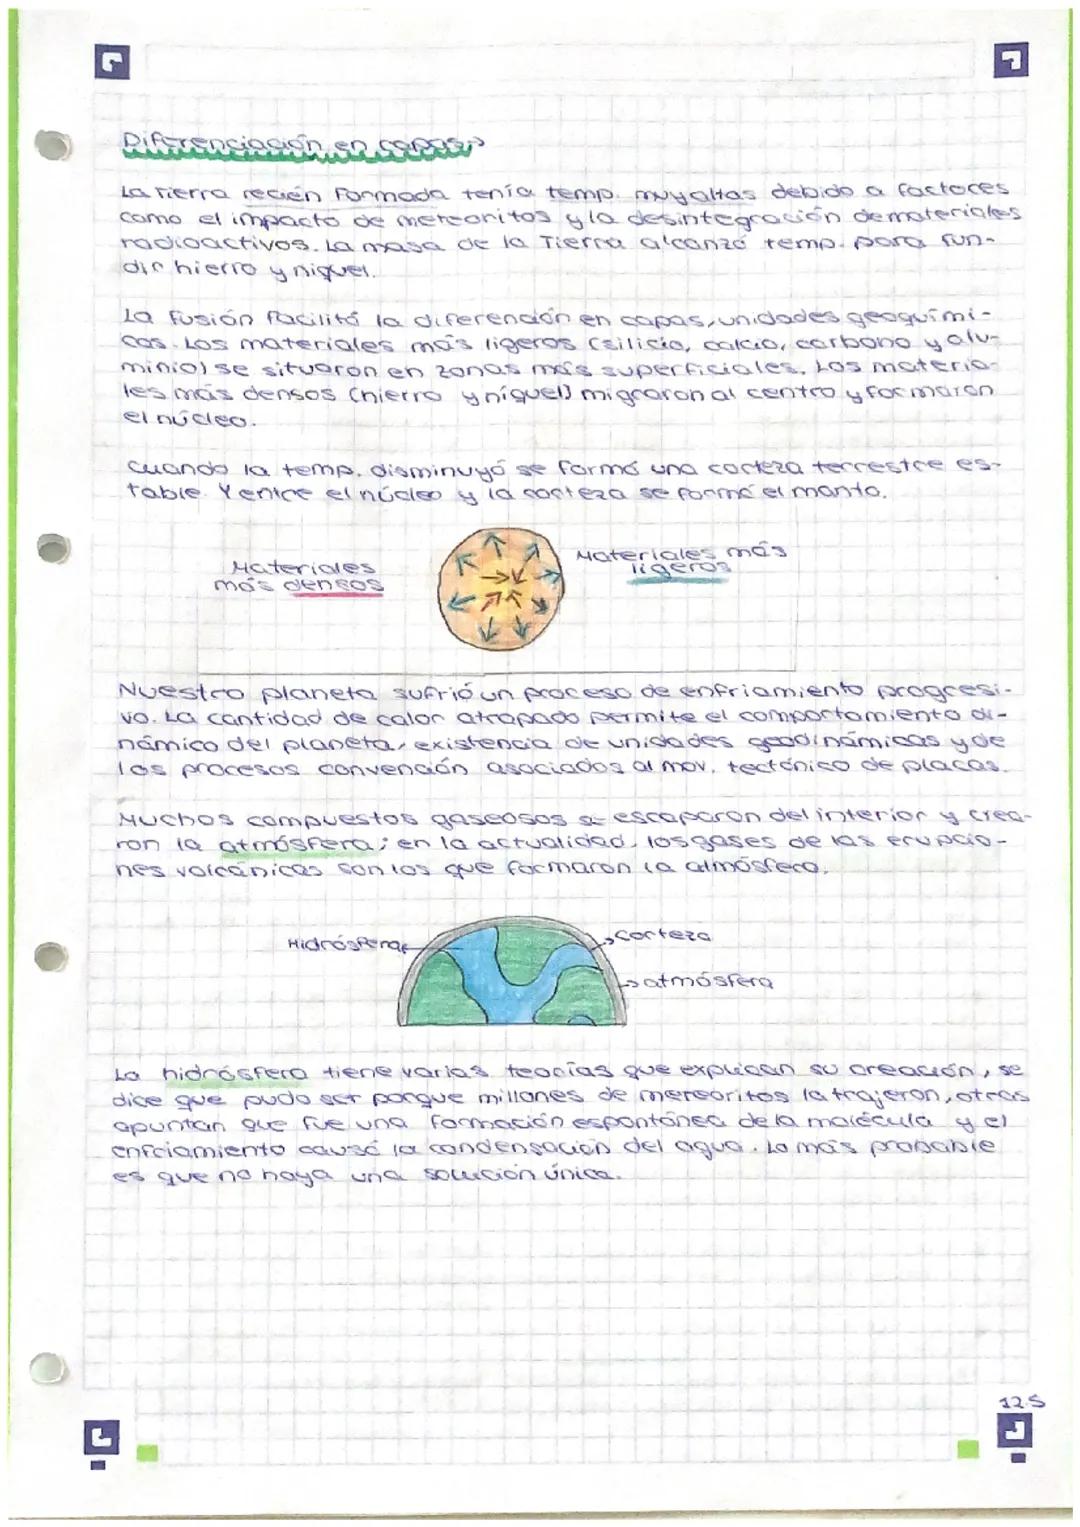 Diferenciación en capas
La Tierra recién formada tenía temp. muy altas debido a factores
como el impacto de meteoritos y la desintegración de materiales
radioactivos. La masa de la Tierra alcanzó temp. para fun-
dir hierro y níquel.
La fusión facilitó la diferención en capas, unidades geoquími-
cas. Los materiales más ligeros (silicio, calcio, carbono y alu-
minio) se situaron en zonas más superficiales. Los materia-
les más densos (hierro y níquel) migraron al centro y formaron
el núcleo.
Cuando la temp. disminuyó se formó una corteza terrestre es-
table. Y entre el núcleo y la corteza se formó el manto.
Materiales
más densos
Materiales más
ligeros
Nuestro planeta sufrió un proceso de enfriamiento progresi-
vo. La cantidad de calor atrapado permite el comportamiento di-
námico del planeta, existencia de unidades geodinámicas y de
los procesos convención asociados al mov. tectónico de placas.
Muchos compuestos gaseosos se escaparon del interior y crea-
ron la atmósfera; en la actualidad, los gases de las erupcio-
nes volcánicas son los que formaron la atmósfera.
Hidrósfera
corteza
atmósfera
La hidrósfera tiene varias teorías que explican su creación, se
dice que pudo ser porque millones de meteoritos la trajeron, otras
apuntan que fue una formación espontánea de la molécula y el
enfriamiento causó la condensación del agua. Lo más probable
es que no haya una solución única.
12.5